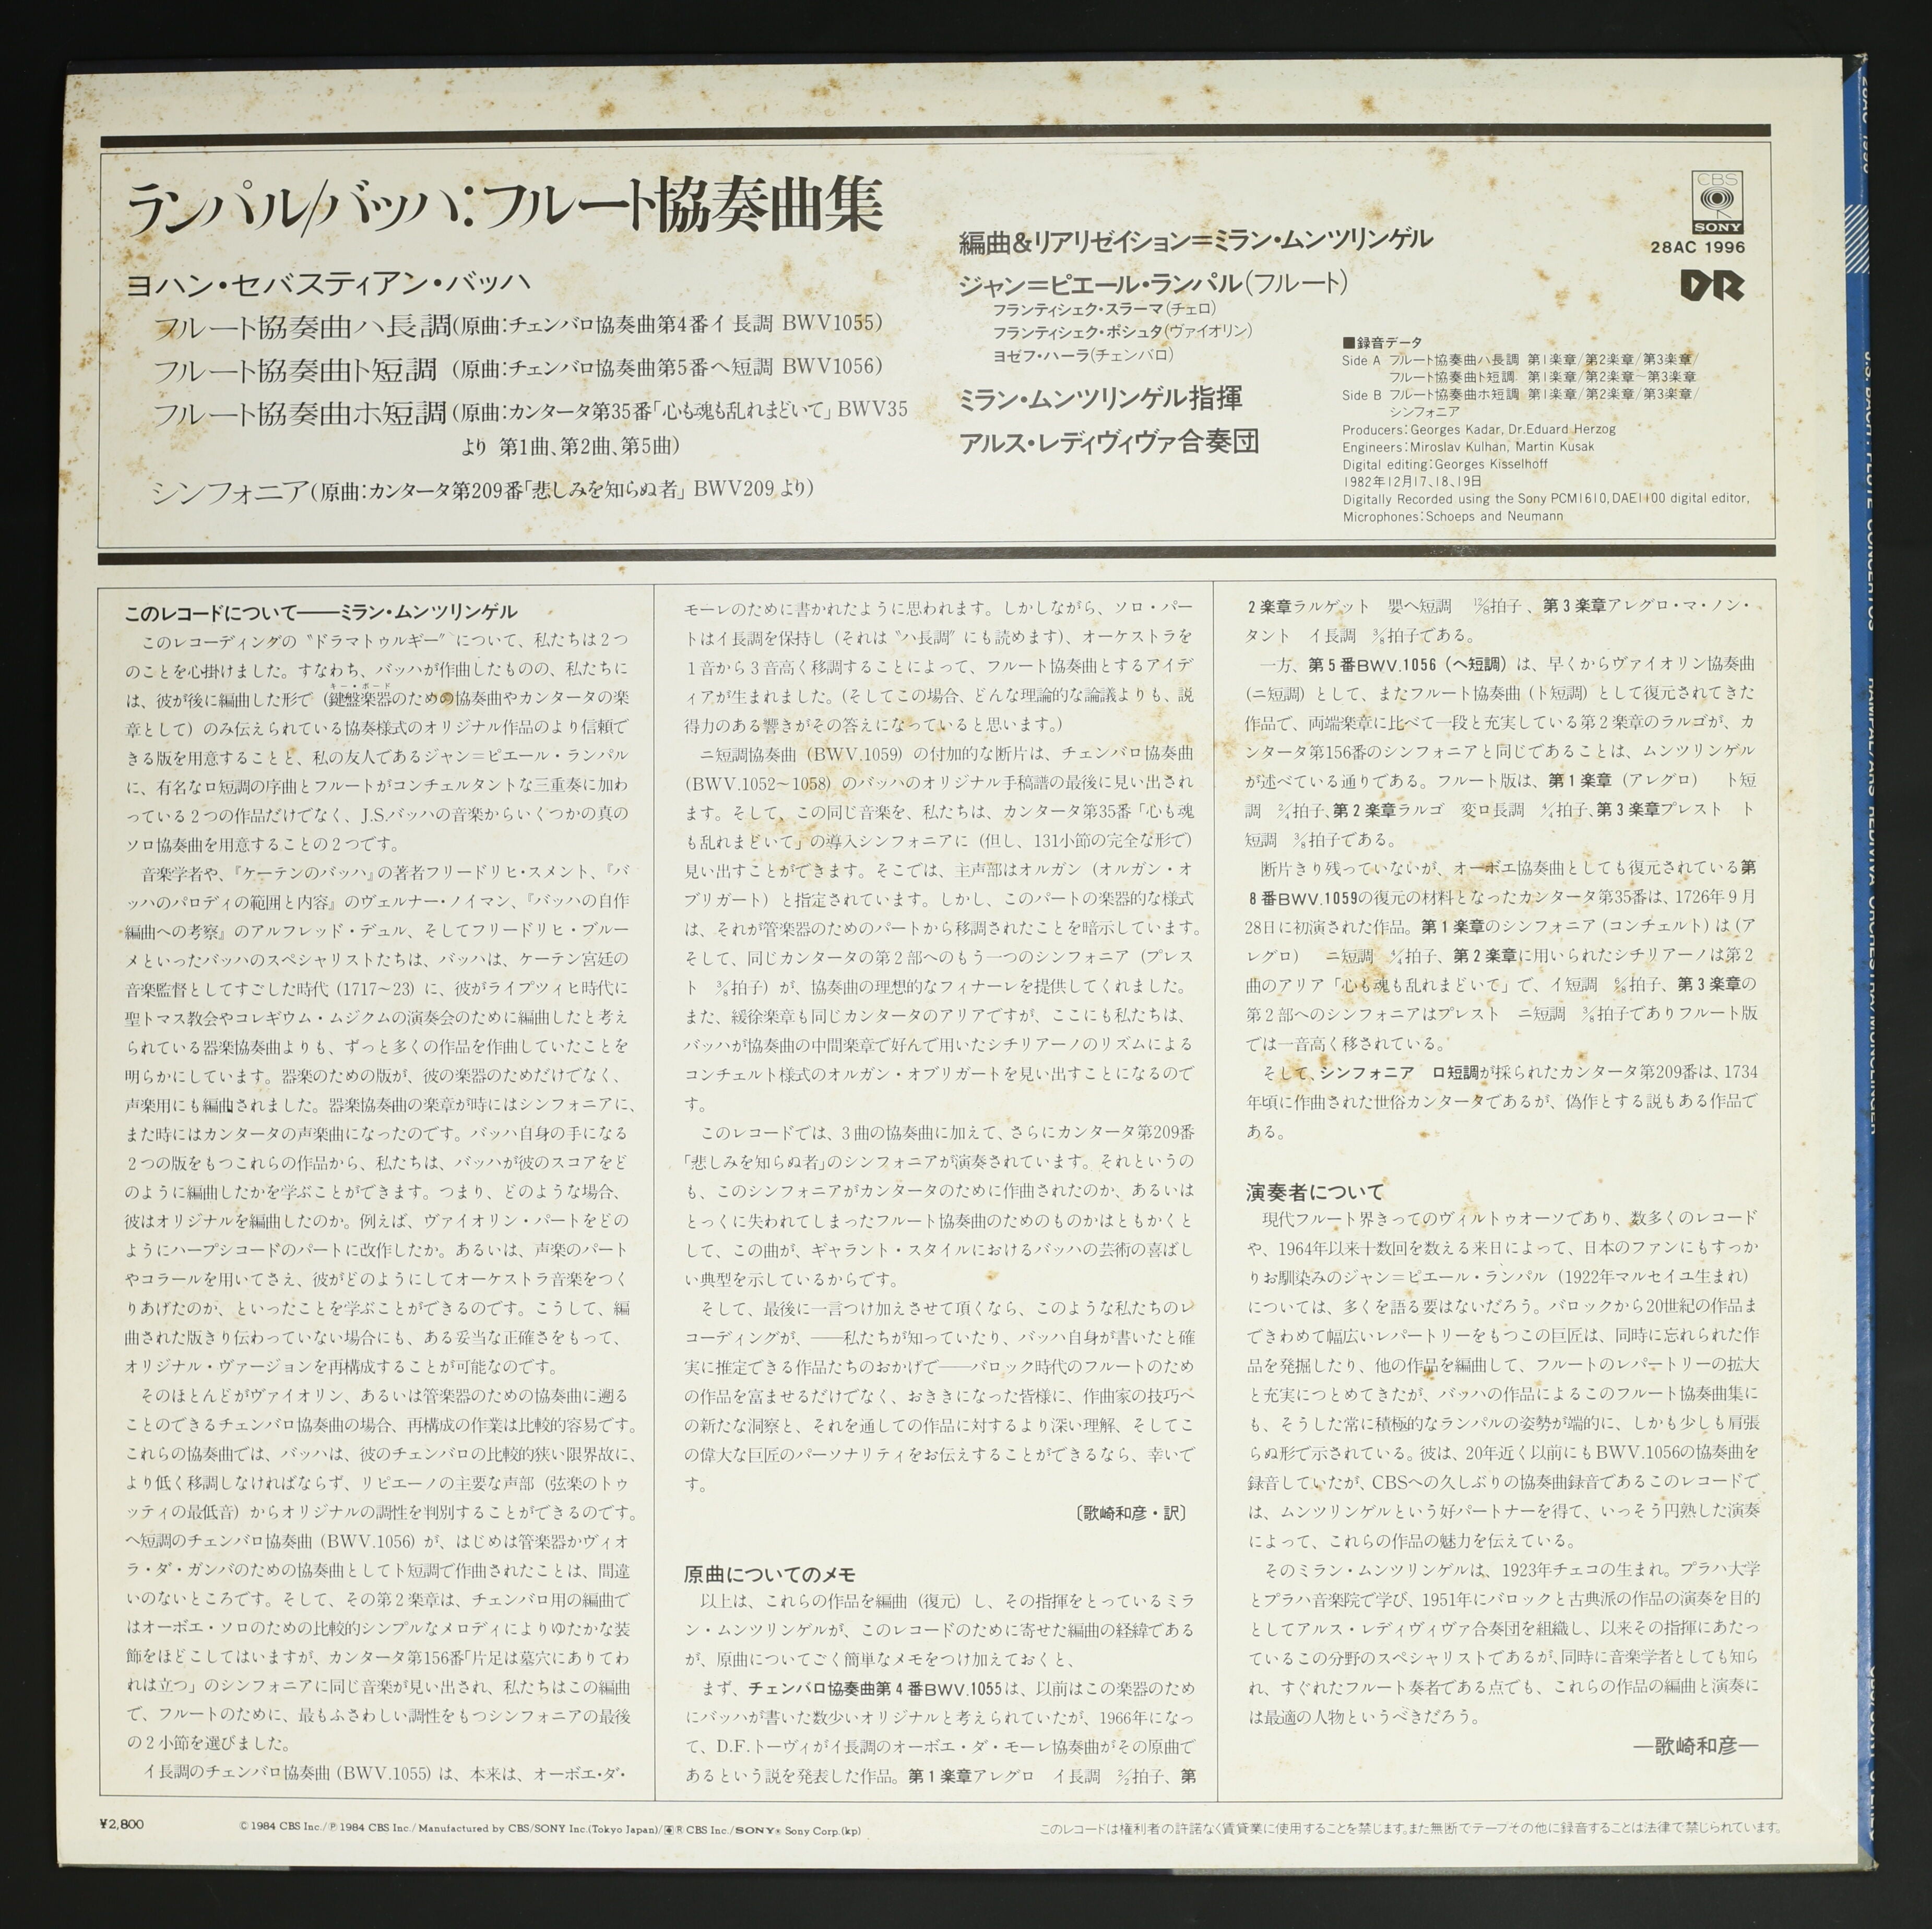 ランパル/バッハ:フルート協奏曲集
ヨハン・セバスティアン・バッハ
フルート協奏曲ハ長調(原曲:チェンバロ協奏曲第4番イ長調 BWV1055)
フルート協奏曲ト短調 (原曲:チェンバロ協奏曲第5番ヘ短調 BWV1056)
フルート協奏曲ホ短調(原曲:カンタータ第35番「心も魂も乱れまどいて」BWV35
より 第1曲、第2曲、第5曲)
シンフォニア(原曲:カンタータ第209番「悲しみを知らぬ者」BWV209 より)
編曲&リアリゼイション=ミラン・ムンツリンゲル
ジャン=ピエール・ランパル(フルート)
フランティシェク・スラーマ(チェロ)
フランティシェク・ポシュタ(ヴァイオリン)
ヨゼフ・ハーラ(チェンバロ)
ミラン・ムンツリンゲル指揮
アルス・レディヴィヴァ合奏団
CBS
SONY
28AC 1996
DR
■録音データ
Side A フルート協奏曲ハ長調 第1楽章/第2楽章/第3楽章/
フルート協奏曲ト短調 第1楽章/第2楽章~第3楽章
Side B フルート協奏曲ホ短調 第1楽章/第2楽章/第3楽章/
シンフォニア
Producers:Georges Kadar, Dr.Eduard Herzog
Engineers:Miroslav Kulhan, Martin Kusak
Digital editing:Georges Kisselhoff
1982年12月17、18、19日
Digitally Recorded using the Sony PCM1610,DAE1100 digital editor,
Microphones:Schoeps and Neumann
このレコードについて——ミラン・ムンツリンゲル
このレコーディングの〝ドラマトゥルギー〟について、私たちは2つ
のことを心掛けました。すなわち、バッハが作曲したものの、私たちに
は、彼が後に編曲した形で(鍵盤楽器のための協奏曲やカンタータの楽
キー・ボード
章として)のみ伝えられている協奏様式のオリジナル作品のより信頼で
きる版を用意することと、私の友人であるジャン=ピエール・ランパル
に、有名なロ短調の序曲とフルートがコンチェルタントな三重奏に加わ
っている2つの作品だけでなく、J.S.バッハの音楽からいくつかの真の
ソロ協奏曲を用意することの2つです。
音楽学者や、『ケーテンのバッハ』の著者フリードリヒ・スメント、『バ
ッハのパロディの範囲と内容』のヴェルナー・ノイマン、『バッハの自作
編曲への考察』のアルフレッド・デュル、そしてフリードリヒ・ブルー
メといったバッハのスペシャリストたちは、バッハは、ケーテン宮廷の
音楽監督としてすごした時代(1717~23)に、彼がライプツィヒ時代に
聖トマス教会やコレギウム・ムジクムの演奏会のために編曲したと考え
られている器楽協奏曲よりも、ずっと多くの作品を作曲していたことを
明らかにしています。器楽のための版が、彼の楽器のためだけでなく、
声楽用にも編曲されました。器楽協奏曲の楽章が時にはシンフォニアに、
また時にはカンタータの声楽曲になったのです。バッハ自身の手になる
2つの版をもつこれらの作品から、私たちは、バッハが彼のスコアをど
のように編曲したかを学ぶことができます。つまり、どのような場合、
彼はオリジナルを編曲したのか。例えば、ヴァイオリン・パートをどの
ようにハープシコードのパートに改作したか。あるいは、声楽のパート
やコラールを用いてさえ、彼がどのようにしてオーケストラ音楽をつく
りあげたのか、といったことを学ぶことができるのです。こうして、編
曲された版きり伝わっていない場合にも、ある妥当な正確さをもって、
オリジナル・ヴァージョンを再構成することが可能なのです。
そのほとんどがヴァイオリン、あるいは管楽器のための協奏曲に遡る
ことのできるチェンバロ協奏曲の場合、再構成の作業は比較的容易です。
これらの協奏曲では、バッハは、彼のチェンバロの比較的狭い限界故に、
より低く移調しなければならず、リピエーノの主要な声部(弦楽のトゥ
ッティの最低音)からオリジナルの調性を判別することができるのです。
ヘ短調のチェンバロ協奏曲(BWV.1056)が、はじめは管楽器かヴィオ
ラ・ダ・ガンバのための協奏曲としてト短調で作曲されたことは、間違
いのないところです。そして、その第2楽章は、チェンバロ用の編曲で
はオーボエ・ソロのための比較的シンプルなメロディによりゆたかな装
飾をほどこしてはいますが、カンタータ第156番「片足は墓穴にありてわ
れは立つ」のシンフォニアに同じ音楽が見い出され、私たちはこの編曲
で、フルートのために、最もふさわしい調性をもつシンフォニアの最後
の2小節を選びました。
イ長調のチェンバロ協奏曲(BWV.1055)は、本来は、オーボエ・ダ・
モーレのために書かれたように思われます。しかしながら、ソロ・パー
トはイ長調を保持し(それは〝ハ長調〟にも読めます)、オーケストラを
1音から3音高く移調することによって、フルート協奏曲とするアイデ
ィアが生まれました。(そしてこの場合、どんな理論的な論議よりも、説
得力のある響きがその答えになっていると思います。)
ニ短調協奏曲(BWV.1059)の付加的な断片は、チェンバロ協奏曲
(BWV.1052~1058)のバッハのオリジナル手稿譜の最後に見い出され
ます。そして、この同じ音楽を、私たちは、カンタータ第35番「心も魂
も乱れまどいて」の導入シンフォニアに(但し、131小節の完全な形で)
見い出すことができます。そこでは、主声部はオルガン(オルガン・オ
ブリガート)と指定されています。しかし、このパートの楽器的な様式
は、それが管楽器のためのパートから移調されたことを暗示しています。
そして、同じカンタータの第2部へのもう一つのシンフォニア(プレス
ト 3/8拍子)が、協奏曲の理想的なフィナーレを提供してくれました。
また、緩徐楽章も同じカンタータのアリアですが、ここにも私たちは、
バッハが協奏曲の中間楽章で好んで用いたシチリアーノのリズムによる
コンチェルト様式のオルガン・オブリガートを見い出すことになるので
す。
このレコードでは、3曲の協奏曲に加えて、さらにカンタータ第209番
「悲しみを知らぬ者」のシンフォニアが演奏されています。それというの
も、このシンフォニアがカンタータのために作曲されたのか、あるいは
とっくに失われてしまったフルート協奏曲のためのものかはともかくと
して、この曲が、ギャラント・スタイルにおけるバッハの芸術の喜ばし
い典型を示しているからです。
そして、最後に一言つけ加えさせて頂くなら、このような私たちのレ
コーディングが、——私たちが知っていたり、バッハ自身が書いたと確
実に推定できる作品たちのおかげで——バロック時代のフルートのため
の作品を富ませるだけでなく、おききになった皆様に、作曲家の技巧へ
の新たな洞察と、それを通しての作品に対するより深い理解、そしてこ
の偉大な巨匠のパーソナリティをお伝えすることができるなら、幸いで
す。
〔歌崎和彦・訳〕
原曲についてのメモ
以上は、これらの作品を編曲(復元)し、その指揮をとっているミラ
ン・ムンツリンゲルが、このレコードのために寄せた編曲の経緯である
が、原曲についてごく簡単なメモをつけ加えておくと、
まず、チェンバロ協奏曲第4番BWV.1055は、以前はこの楽器のため
にバッハが書いた数少いオリジナルと考えられていたが、1966年になっ
て、D.F.トーヴィがイ長調のオーボエ・ダ・モーレ協奏曲がその原曲で
あるという説を発表した作品。第1楽章アレグロ イ長調 2/2拍子、第
2楽章ラルゲット 嬰ヘ短調 12/8拍子、第3楽章アレグロ・マ・ノン・
タント イ長調 3/8拍子である。
一方、第5番BWV.1056(ヘ短調)は、早くからヴァイオリン協奏曲
(ニ短調)として、またフルート協奏曲(ト短調)として復元されてきた
作品で、両端楽章に比べて一段と充実している第2楽章のラルゴが、カ
ンタータ第156番のシンフォニアと同じであることは、ムンツリンゲル
が述べている通りである。フルート版は、第1楽章(アレグロ) ト短
調 2/4拍子、第2楽章ラルゴ 変ロ長調 4/4拍子、第3楽章プレスト ト
短調 3/8拍子である。
断片きり残っていないが、オーボエ協奏曲としても復元されている第
8番BWV.1059の復元の材料となったカンタータ第35番は、1726年9月
28日に初演された作品。第1楽章のシンフォニア(コンチェルト)は(ア
レグロ) ニ短調 4/4拍子、第2楽章に用いられたシチリアーノは第2
曲のアリア「心も魂も乱れまどいて」で、イ短調 6/8拍子、第3楽章の
第2部へのシンフォニアはプレスト ニ短調 3/8拍子でありフルート版
では一音高く移されている。
そして、シンフォニア ロ短調が採られたカンタータ第209番は、1734
年頃に作曲された世俗カンタータであるが、偽作とする説もある作品で
ある。
演奏者について
現代フルート界きってのヴィルトゥオーソであり、数多くのレコード
や、1964年以来十数回を数える来日によって、日本のファンにもすっか
りお馴染みのジャン=ピエール・ランパル(1922年マルセイユ生まれ)
については、多くを語る要はないだろう。バロックから20世紀の作品ま
できわめて幅広いレパートリーをもつこの巨匠は、同時に忘れられた作
品を発掘したり、他の作品を編曲して、フルートのレパートリーの拡大
と充実につとめてきたが、バッハの作品によるこのフルート協奏曲集に
も、そうした常に積極的なランパルの姿勢が端的に、しかも少しも肩張
らぬ形で示されている。彼は、20年近く以前にもBWV.1056の協奏曲を
録音していたが、CBSへの久しぶりの協奏曲録音であるこのレコードで
は、ムンツリンゲルという好パートナーを得て、いっそう円熟した演奏
によって、これらの作品の魅力を伝えている。
そのミラン・ムンツリンゲルは、1923年チェコの生まれ。プラハ大学
とプラハ音楽院で学び、1951年にバロックと古典派の作品の演奏を目的
としてアルス・レディヴィヴァ合奏団を組織し、以来その指揮にあたっ
ているこの分野のスペシャリストであるが、同時に音楽学者としても知ら
れ、すぐれたフルート奏者である点でも、これらの作品の編曲と演奏に
は最適の人物というべきだろう。
—歌崎和彦—
¥2,800
© 1984 CBS Inc./℗ 1984 CBS Inc./Manufactured by CBS/SONY Inc.(Tokyo Japan)/® CBS Inc./SONY® Sony Corp.(kp)
このレコードは権利者の許諾なく賃貸業に使用することを禁じます。また無断でテープその他に録音することは法律で禁じられています。